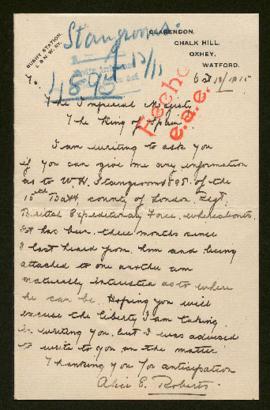 BUSHY STATION.
L. & N.W. RY.
CLARENDON,
CHALK HILL,
OXHEY,
WATFORD.
Stangroom
4895
Hecho
e.a.e.
The Imperial Majesty
The King of Spain
I am writing to ask you
if you can give me any information
as to W. H. Stangroom 1898. of the
15th Batt. County of London Regt.
British Expeditionary Force. whereabouts.
It has been three months since
I last heard from him and being
attached to one another am
naturally interested as to where
he can be. Hoping you will
excuse the liberty I am taking
in writing you, but I was advised
to write to you on the matter
Thanking you for anticipation
Alice E. Roberts.